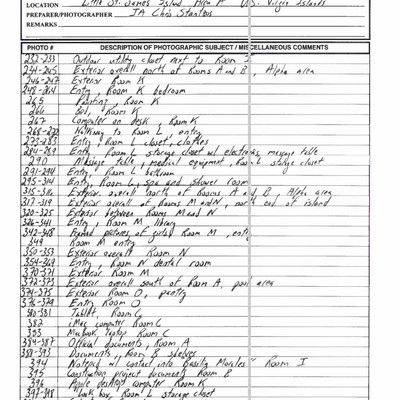 LOCATION Little St. James Island Area A U.S. Virgin Islands
PREPARER/PHOTOGRAPHER IA Chris Stanton
REMARKS
PHOTO # DESCRIPTION OF PHOTOGRAPHIC SUBJECT / MISCELLANEOUS COMMENTS
232-233 Outdoor utility closet next to Room J
234-245 Exterior overall north of Rooms A and B, Alpha area
246-247 Exterior Room K
248-264 Entry, Room K bedroom
265 Painting, Room K
266 Bed, Room K
267 Computer on desk, Room K
268-272 Walkway to Room L, entry
273-283 Entry, Room L closet, clothes
284-289 Entry, Room L storage closet w/ electronic massage table
290 Massage table, medical equipment, Room L storage closet
291-294 Entry, Room L bathroom
295-314 Entry, Room L, spa and shower room
315-316 Exterior overall north of Rooms A and B, Alpha area
317-319 Exterior overall of Rooms M and N, north end of island
320-325 Exterior between Rooms M and N
326-341 Entry, Room M library
342-348 Framed pictures of girls Room M, entry
349 Room M entry
350-353 Exterior overall Room N
354-369 Entry, Room N dental room
370-371 Exterior Room M
372-373 Exterior overall south of Room A, pool area
374-375 Exterior Room O, pantry
376-379 Entry Room O
380-381 Tablet, Room C
382 iMac computer Room C
383 Macbook laptop Room C
384-387 Official documents, Room A
388-393 Documents, Room B shelves
394 Notepad w/ contact info Room I
395 Construction project documents Room B
396 Apple desktop computer Room K
397-398 Lock box, Room L storage closet